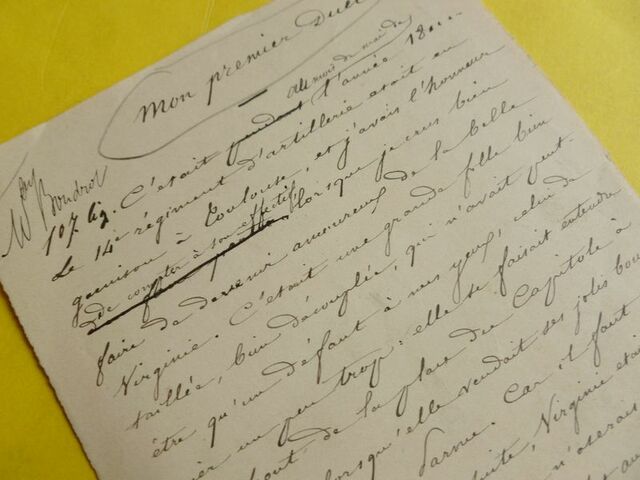 mon premier Duel
au mois de mai de
Boudroz
107 lig. C'était pendant l'année 18....
Le 14e régiment d'artillerie était en
garnison à Toulouse, et j'avais l'honneur
de compter à son effectif, lorsque je crus bien
faire de devenir amoureux de la belle
Virginie. C'était une grande fille bien
taillée, bien découplée, qui n'avait peut-
être qu'un défaut à mes yeux, celui de
un peu trop : elle se faisait entendre
de la place du Capitole à
lorsqu'elle vendait ses jolis bou
Car il faut
Virginie était
n'oserais